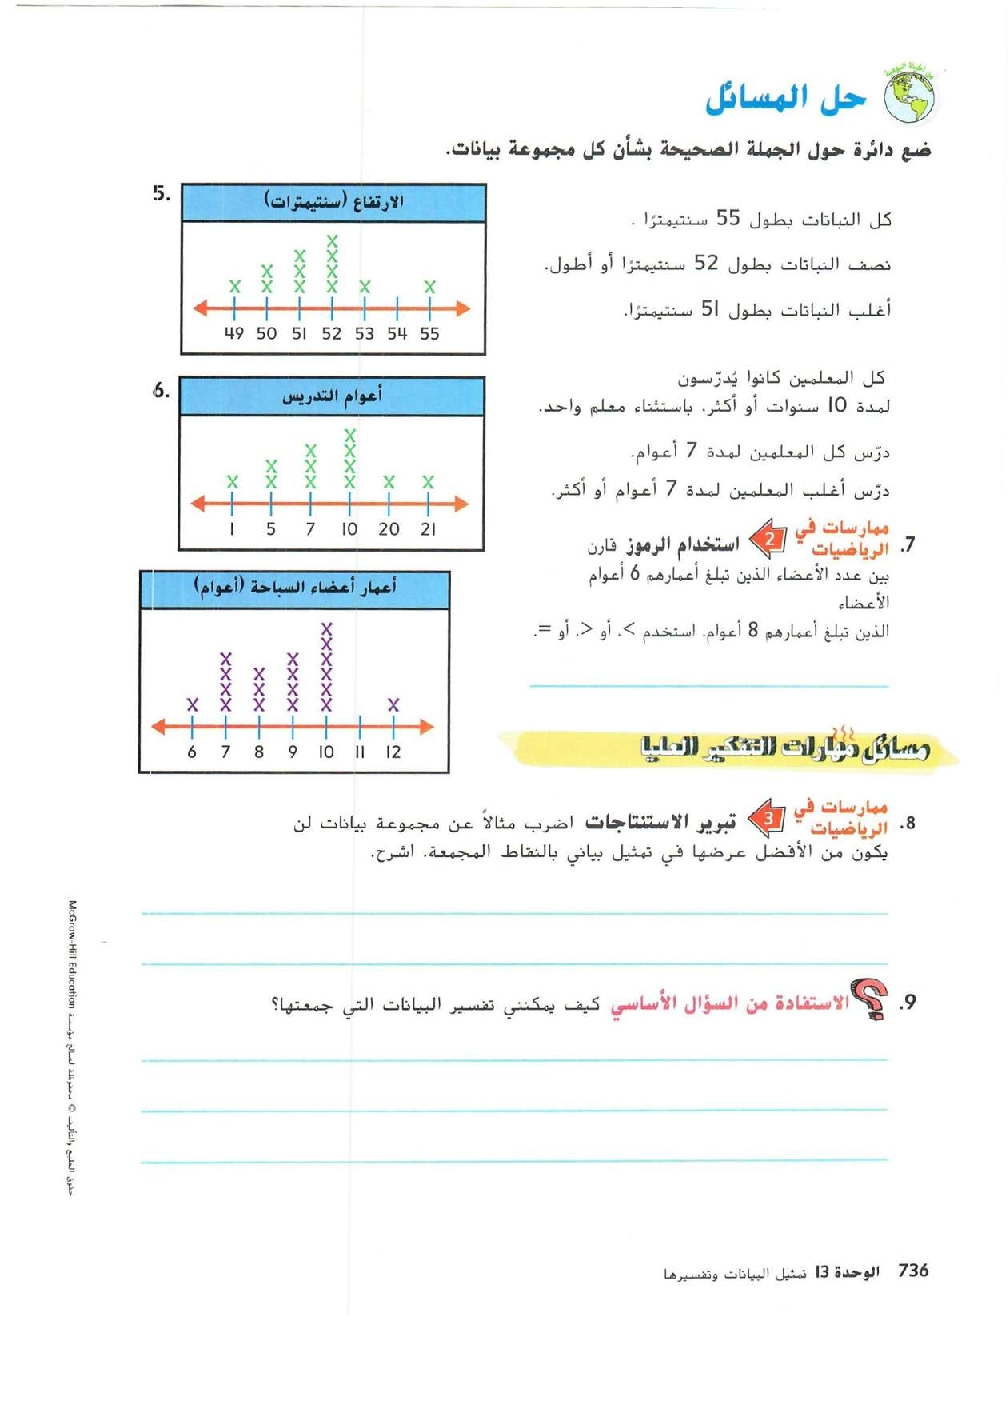 من الحياة اليومية
حل المسائل
ضع دائرة حول الجملة الصحيحة بشأن كل مجموعة بيانات.
5.
الارتفاع (سنتيمترات)
X
X X
X X X
X X X X X X
49 50 51 52 53 54 55
كل النباتات بطول 55 سنتيمترًا .
نصف النباتات بطول 52 سنتيمترًا أو أطول.
أغلب النباتات بطول 51 سنتيمترًا.
6.
أعوام التدريس
X
X X
X X X
X X X X X X
1 5 7 10 20 21
كل المعلمين كانوا يُدرّسون
لمدة 10 سنوات أو أكثر، باستثناء معلم واحد.
درّس كل المعلمين لمدة 7 أعوام.
درّس أغلب المعلمين لمدة 7 أعوام أو أكثر.
7. ممارسات في الرياضيات 2 استخدام الرموز قارن
بين عدد الأعضاء الذين تبلغ أعمارهم 6 أعوام
الأعضاء
الذين تبلغ أعمارهم 8 أعوام. استخدم >، أو <، أو =.
أعمار أعضاء السباحة (أعوام)
X
X
X X X
X X X X
X X X X
X X X X X X
6 7 8 9 10 11 12
مسائل مهارات التفكير العليا
8. ممارسات في الرياضيات 3 تبرير الاستنتاجات اضرب مثالاً عن مجموعة بيانات لن
يكون من الأفضل عرضها في تمثيل بياني بالنقاط المجمعة. اشرح.
9. الاستفادة من السؤال الأساسي كيف يمكنني تفسير البيانات التي جمعتها؟
حقوق الطبع والتأليف © محفوظة لصالح مؤسسة McGraw-Hill Education
736 الوحدة 13 تمثيل البيانات وتفسيرها